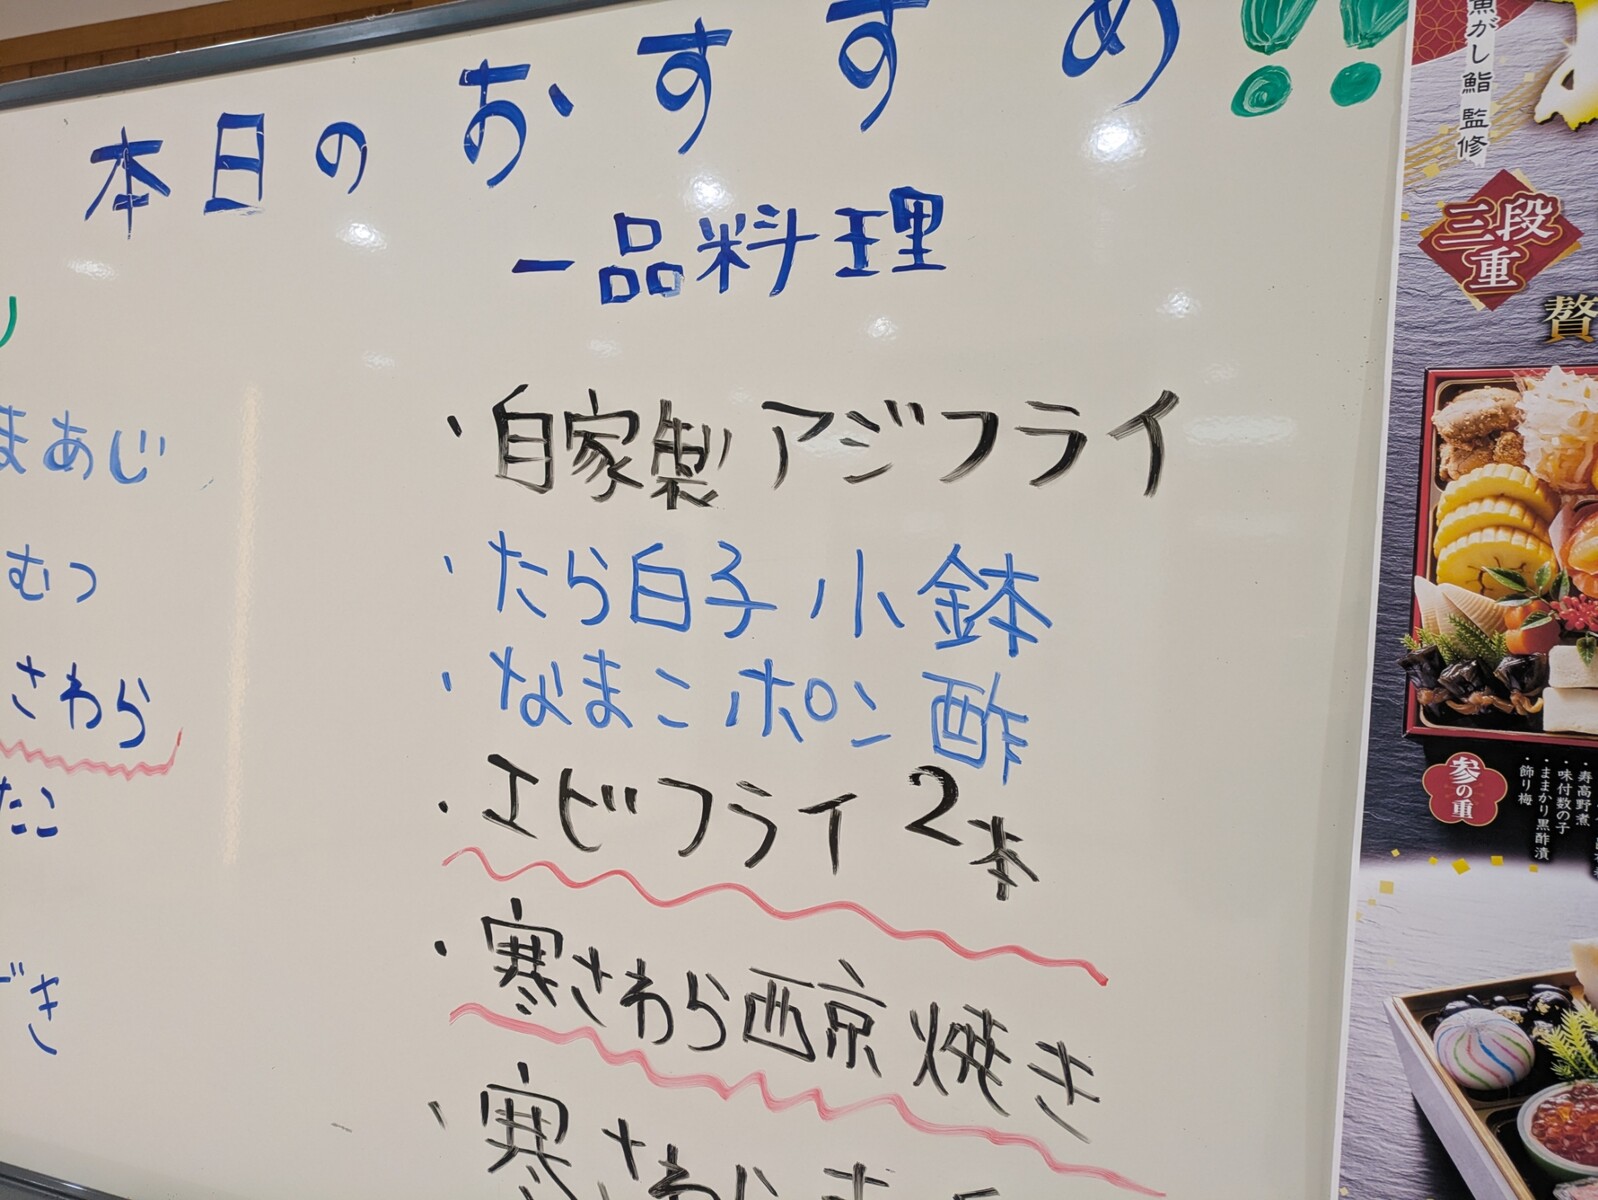 本日のおすすめ!!
一品料理
まあじ
むつ
さわら
たこ
・自家製アジフライ
・たら白子小鉢
・なまこポン酢
・エビフライ2本
・寒さわら西京焼き
・寒さわら
魚がし鮨 監修
三段重
贅
参の重
・寿高野煮
・味付数の子
・ままかり黒酢漬
・飾り梅